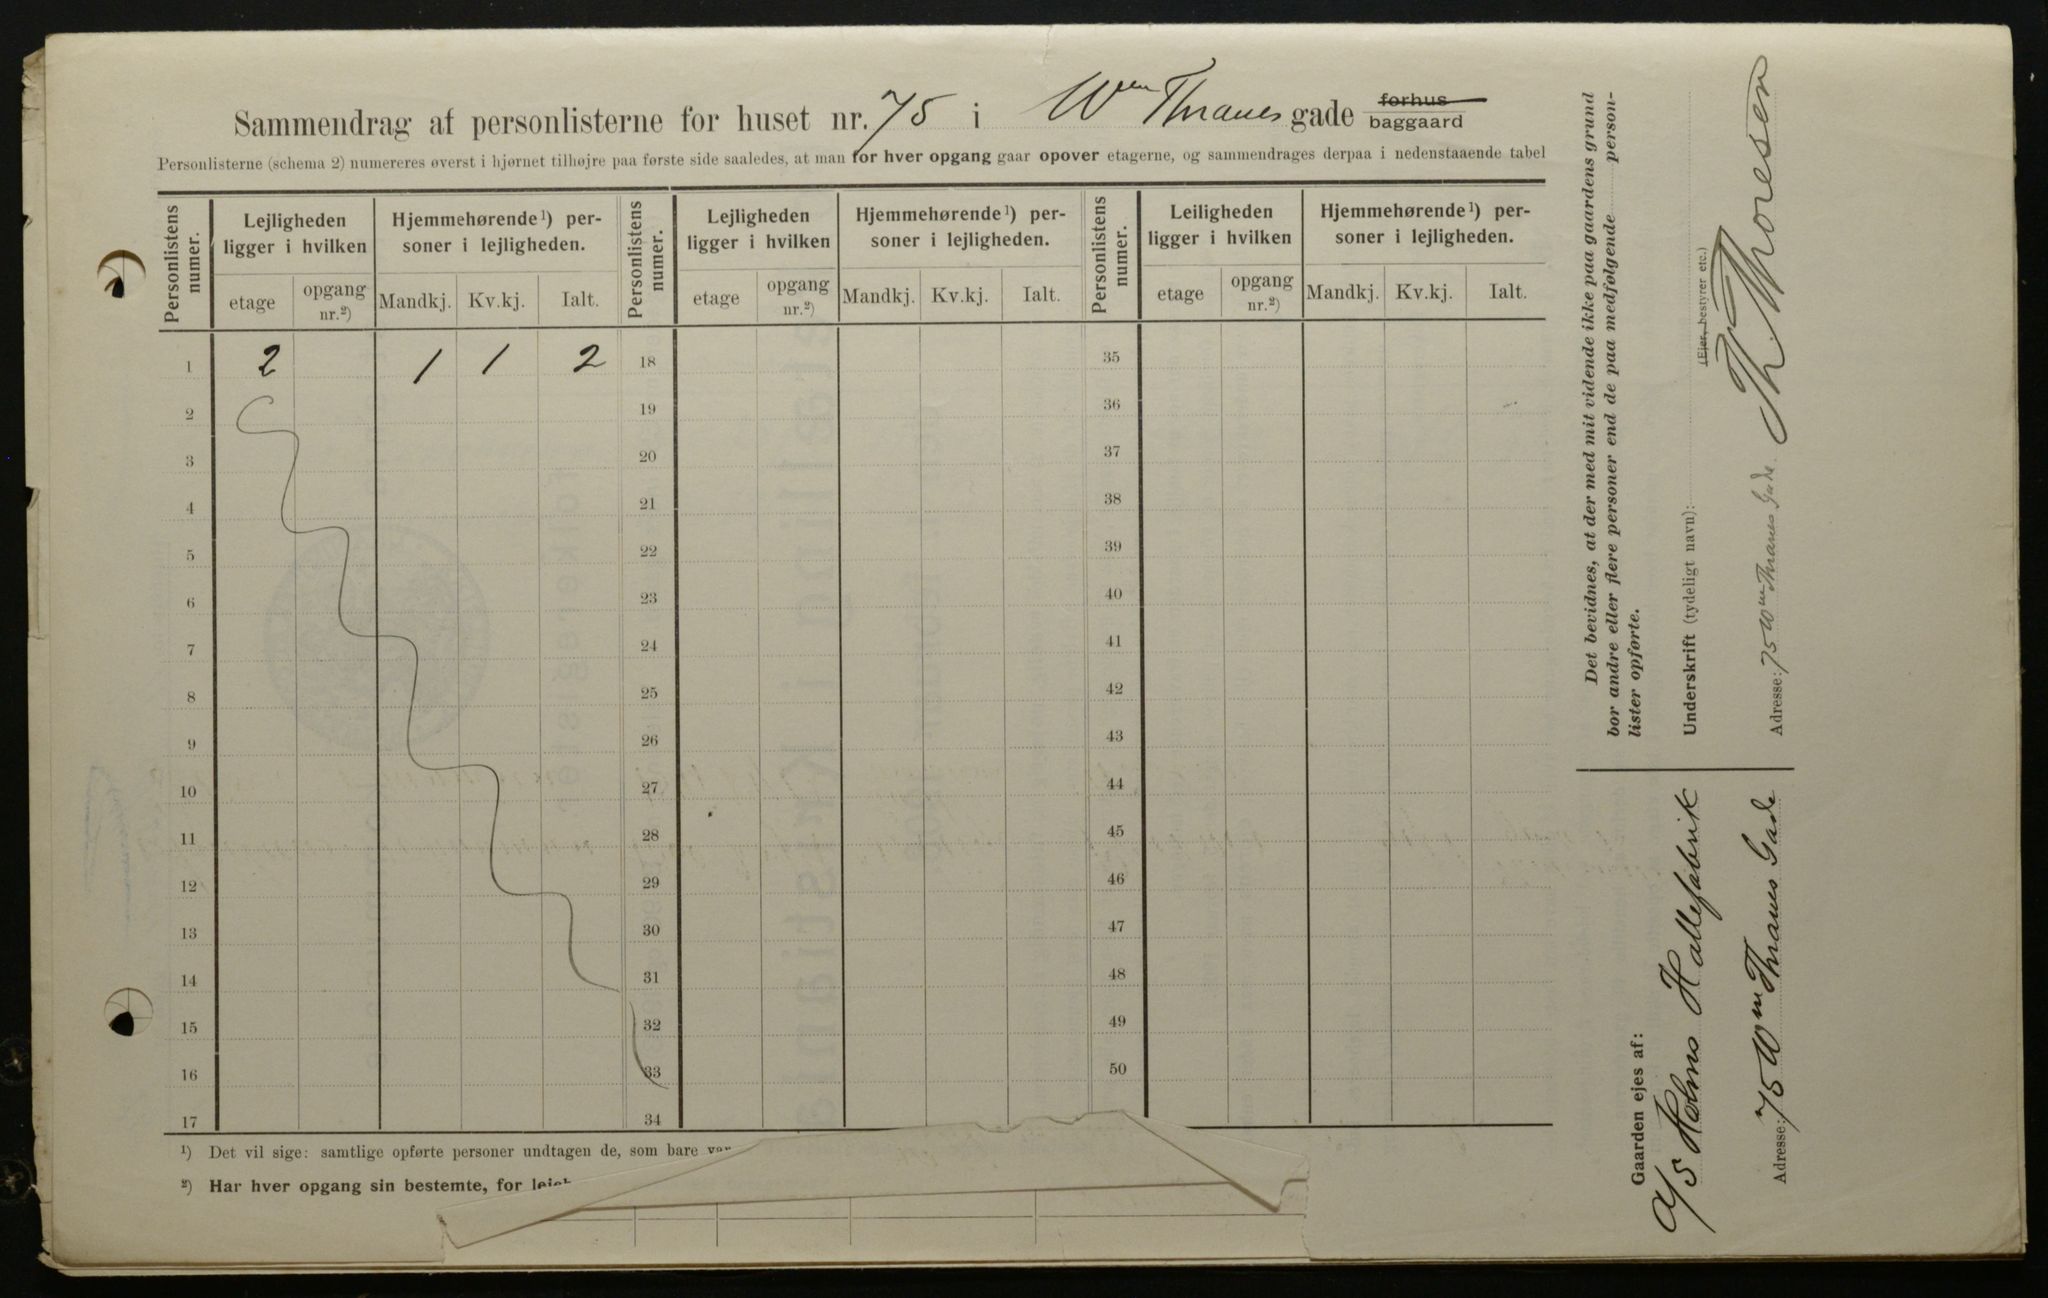 Sammendrag af personlisterne for huset nr. 75 i Wm Thranes gade forhus baggaard
Personlisterne (schema 2) numereres øverst i hjørnet tilhøjre paa første side saaledes, at man for hver opgang gaar opover etagerne, og sammendrages derpaa i nedenstaaende tabel
Personlistens numer. Lejligheden ligger i hvilken Hjemmehørende¹) personer i lejligheden. Personlistens numer. Lejligheden ligger i hvilken Hjemmehørende¹) personer i lejligheden. Personlistens numer. Leiligheden ligger i hvilken Hjemmehørende¹) personer i lejligheden.
etage opgang nr.²) Mandkj. Kv.kj. Ialt. etage opgang nr.²) Mandkj. Kv.kj. Ialt. etage opgang nr.²) Mandkj. Kv.kj. Ialt.
1 2 1 1 2 18 35
2 19 36
3 20 37
4 21 38
5 22 39
6 23 40
7 24 41
8 25 42
9 26 43
10 27 44
11 28 45
12 29 46
13 30 47
14 31 48
15 32 49
16 33 50
17 34
¹) Det vil sige: samtlige opførte personer undtagen de, som bare
²) Har hver opgang sin bestemte, for
Det bevidnes, at der med mit vidende ikke paa gaardens grund
bor andre eller flere personer end de paa medfølgende person-
lister opførte.
Underskrift (tydeligt navn):
(Ejer, bestyrer etc.)
Th. Thoresen
Adresse: 75 Wm Thranes Gade.
Gaarden ejes af:
A/S Holms Hallefabrik
Adresse: 75 Wm Thranes Gade